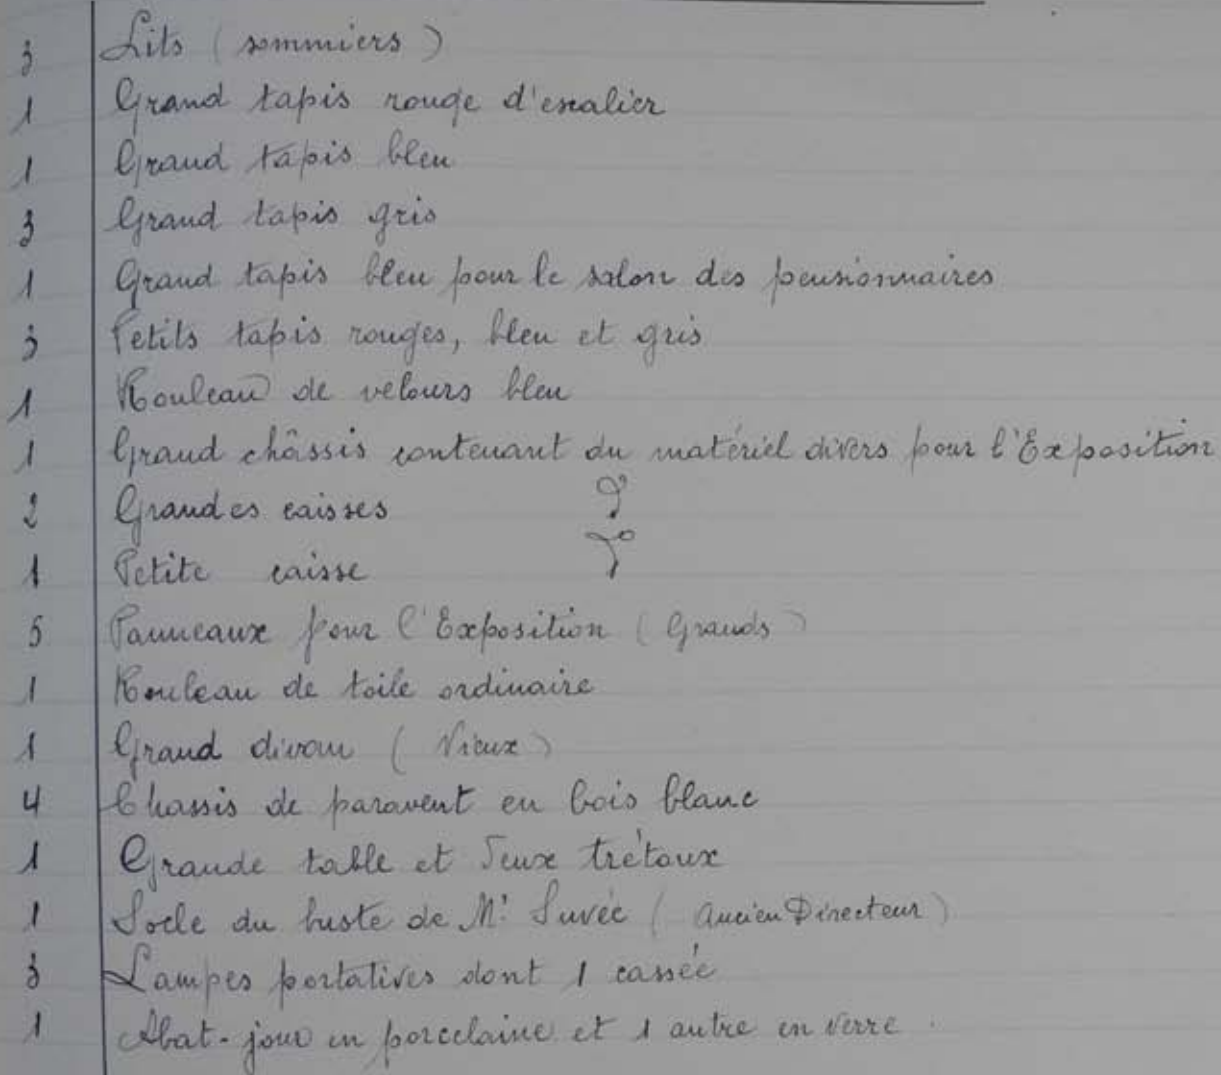 3 Lits (sommiers)
1 Grand tapis rouge d'escalier
1 Grand tapis bleu
3 Grand tapis gris
1 Grand tapis bleu pour le salon des pensionnaires
3 Petits tapis rouges, bleu et gris
1 Rouleau de velours bleu
1 Grand châssis contenant du matériel divers pour l'Exposition
2 Grandes caisses
1 Petite caisse
5 Panneaux pour l'Exposition (Grands)
1 Rouleau de toile ordinaire
1 Grand divan (Vieux)
4 Chassis de paravent en bois blanc
1 Grande table et deux trétaux
1 Socle du buste de Mr Suvée (Ancien Directeur)
3 Lampes portatives dont 1 cassée
1 Abat-jour en porcelaine et 1 autre en verre.